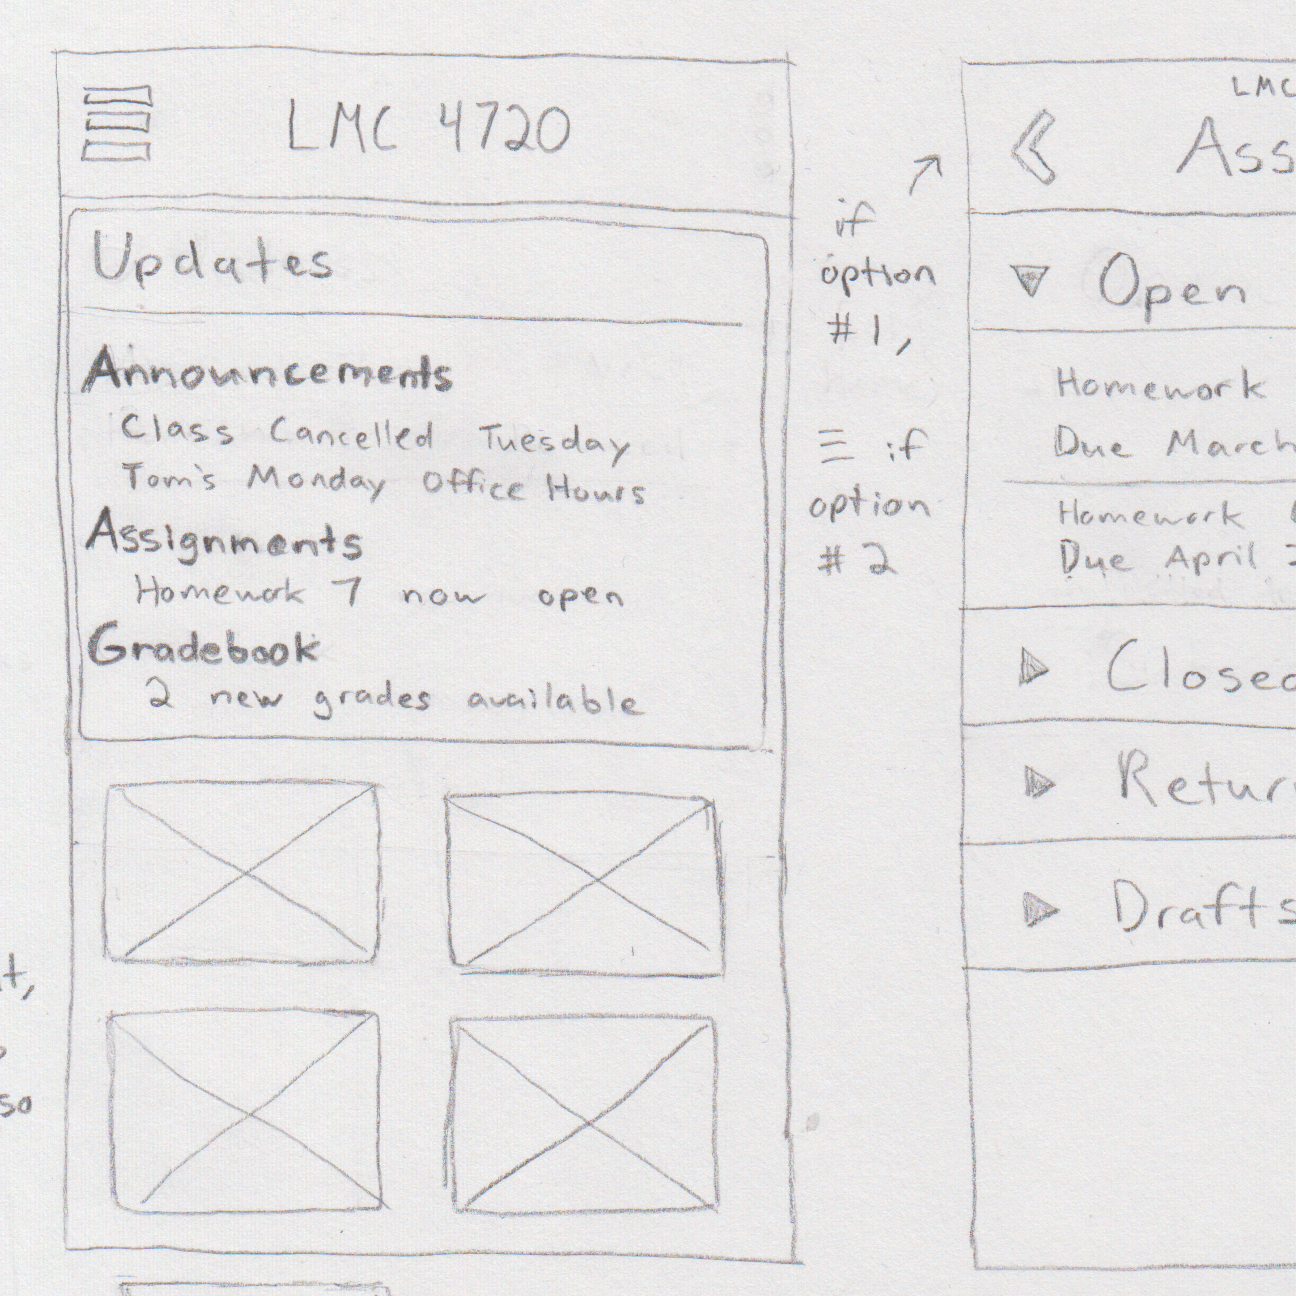 LMC 4720
Updates
Announcements
Class Cancelled Tuesday
Tom's Monday Office Hours
Assignments
Homework 7 now open
Gradebook
2 new grades available
if
option
#1,
if
option
#2
LMC
Open
Homework
Due March
Homework
Due April
Closed
Drafts
so